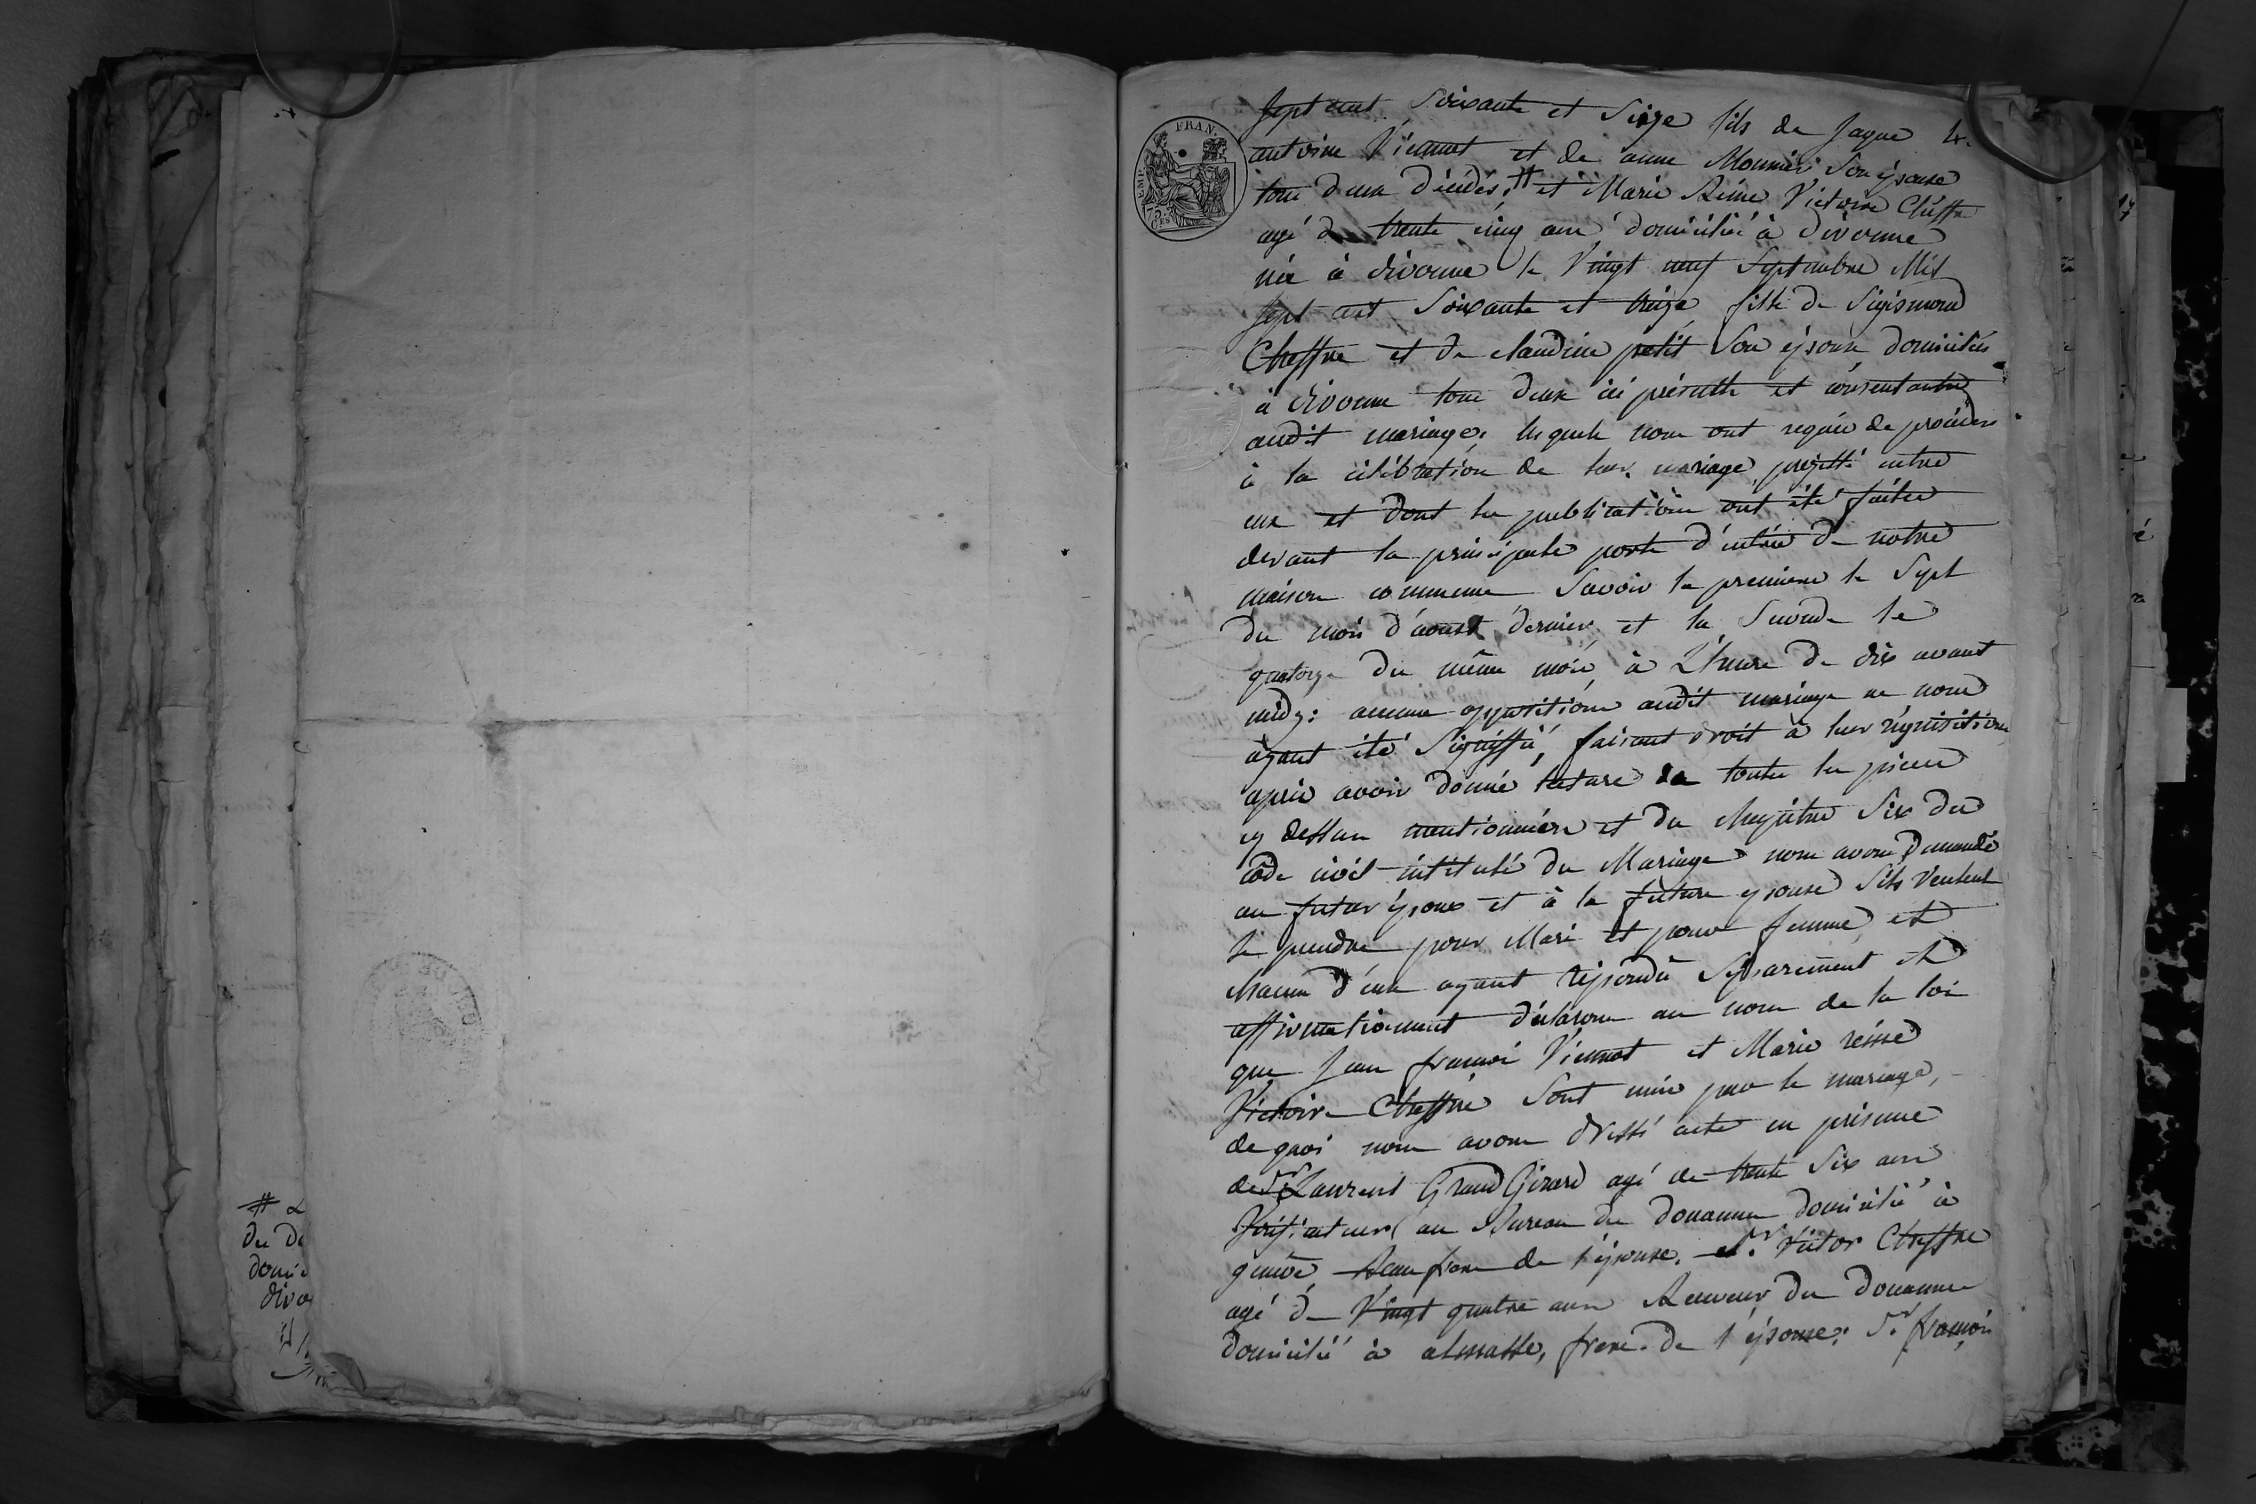 # 
du Do
domi
divo
FRAN.
EMP.
75.
CES
sept cent Soixante et Seize fils de Jaque
antoine Viennet et de anne Mounier Son épouse
tous deux décédés. # et Marie Reine Victoire Cheffre
agé de trente cinq ans domiciliée à divonne
née à divonne le Vingt neuf Septembre Mil
sept cent Soixante et treize fille de Sigismond
Cheffre et de claudine petit Son épouse domiciliés
à divonne tous deux ici présents et consentants
audit mariage. les quels nous ont requis de procéder
à la célébration de leur mariage projetté entre
eux et dont les publications ont été faites
devant la principale porte d'entrée de notre
maison commune Savoir la premiere le Sept
du mois d'aoust dernier et la Seconde le
quatorze du même mois à L'heure de dix avant
midy: aucune opposition audit mariage ne nous
ayant été Signiffié, faisant droit à leur réquisition
après avoir donné lecture de toutes les pieces
cy dessus mentionnées et du chapitre Six du
code civil intitulé du Mariage nous avons demandé
au futur époux et à la future epouse S'ils Veulent
se prendre pour Mari et pour femme, et
chacun d'eux ayant répondu Séparément et
affirmativement déclarons au nom de la loi
que Jean francois Viennet et Marie reine
Victoire Cheffre Sont unis par le mariage,
de quoi nous avons dressé acte en présence
de Sr Laurent Grand Girard agé de trente Six ans
Vérificateur au Bureau des douannes domicilié à
genève Beau frere de l'épouse. Sr. Victor Cheffre
agé de Vingt quatre ans Receveur des douannes
domicilié à frere de l'épouse; Sr. françois